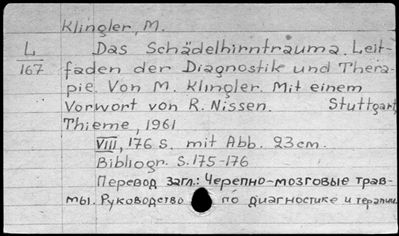 Klingler, M.
L
167
Das Schädelhirntrauma. Leit-
faden der Diagnostik und Thera-
pie. Von M. Klingler. Mit einem
Vorwort von R. Nissen. Stuttgart,
Thieme, 1961
VIII, 176 S. mit Abb. 23 cm.
Bibliogr. S. 175-176
Перевод загл.: Черепно-мозговые трав-
мы. Руководство по диагностике и терапии.